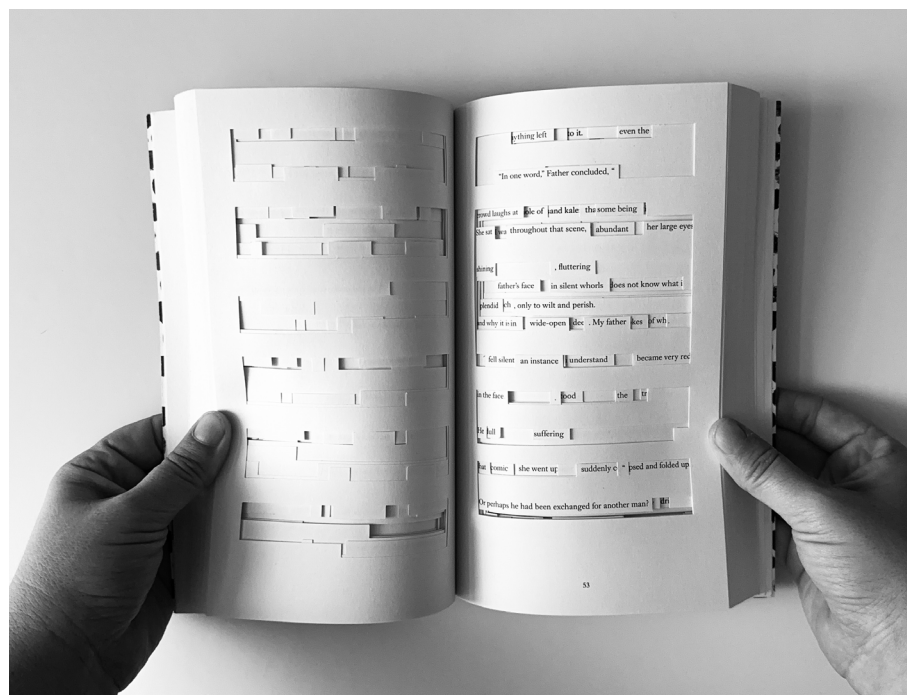 ything left to it. even the
"In one word," Father concluded, "
rowd laughs at ole of and kale the some being
She sat wa throughout that scene, abundant her large eyes
shining , fluttering
father's face in silent whorls does not know what i
plendid ch , only to wilt and perish.
and why it is in wide-open dec . My father kes of wh.
fell silent an instance understand became very red
in the face . food the tr
He ull suffering
hat comic she went up suddenly c " psed and folded up
Or perhaps he had been exchanged for another man? dri
53